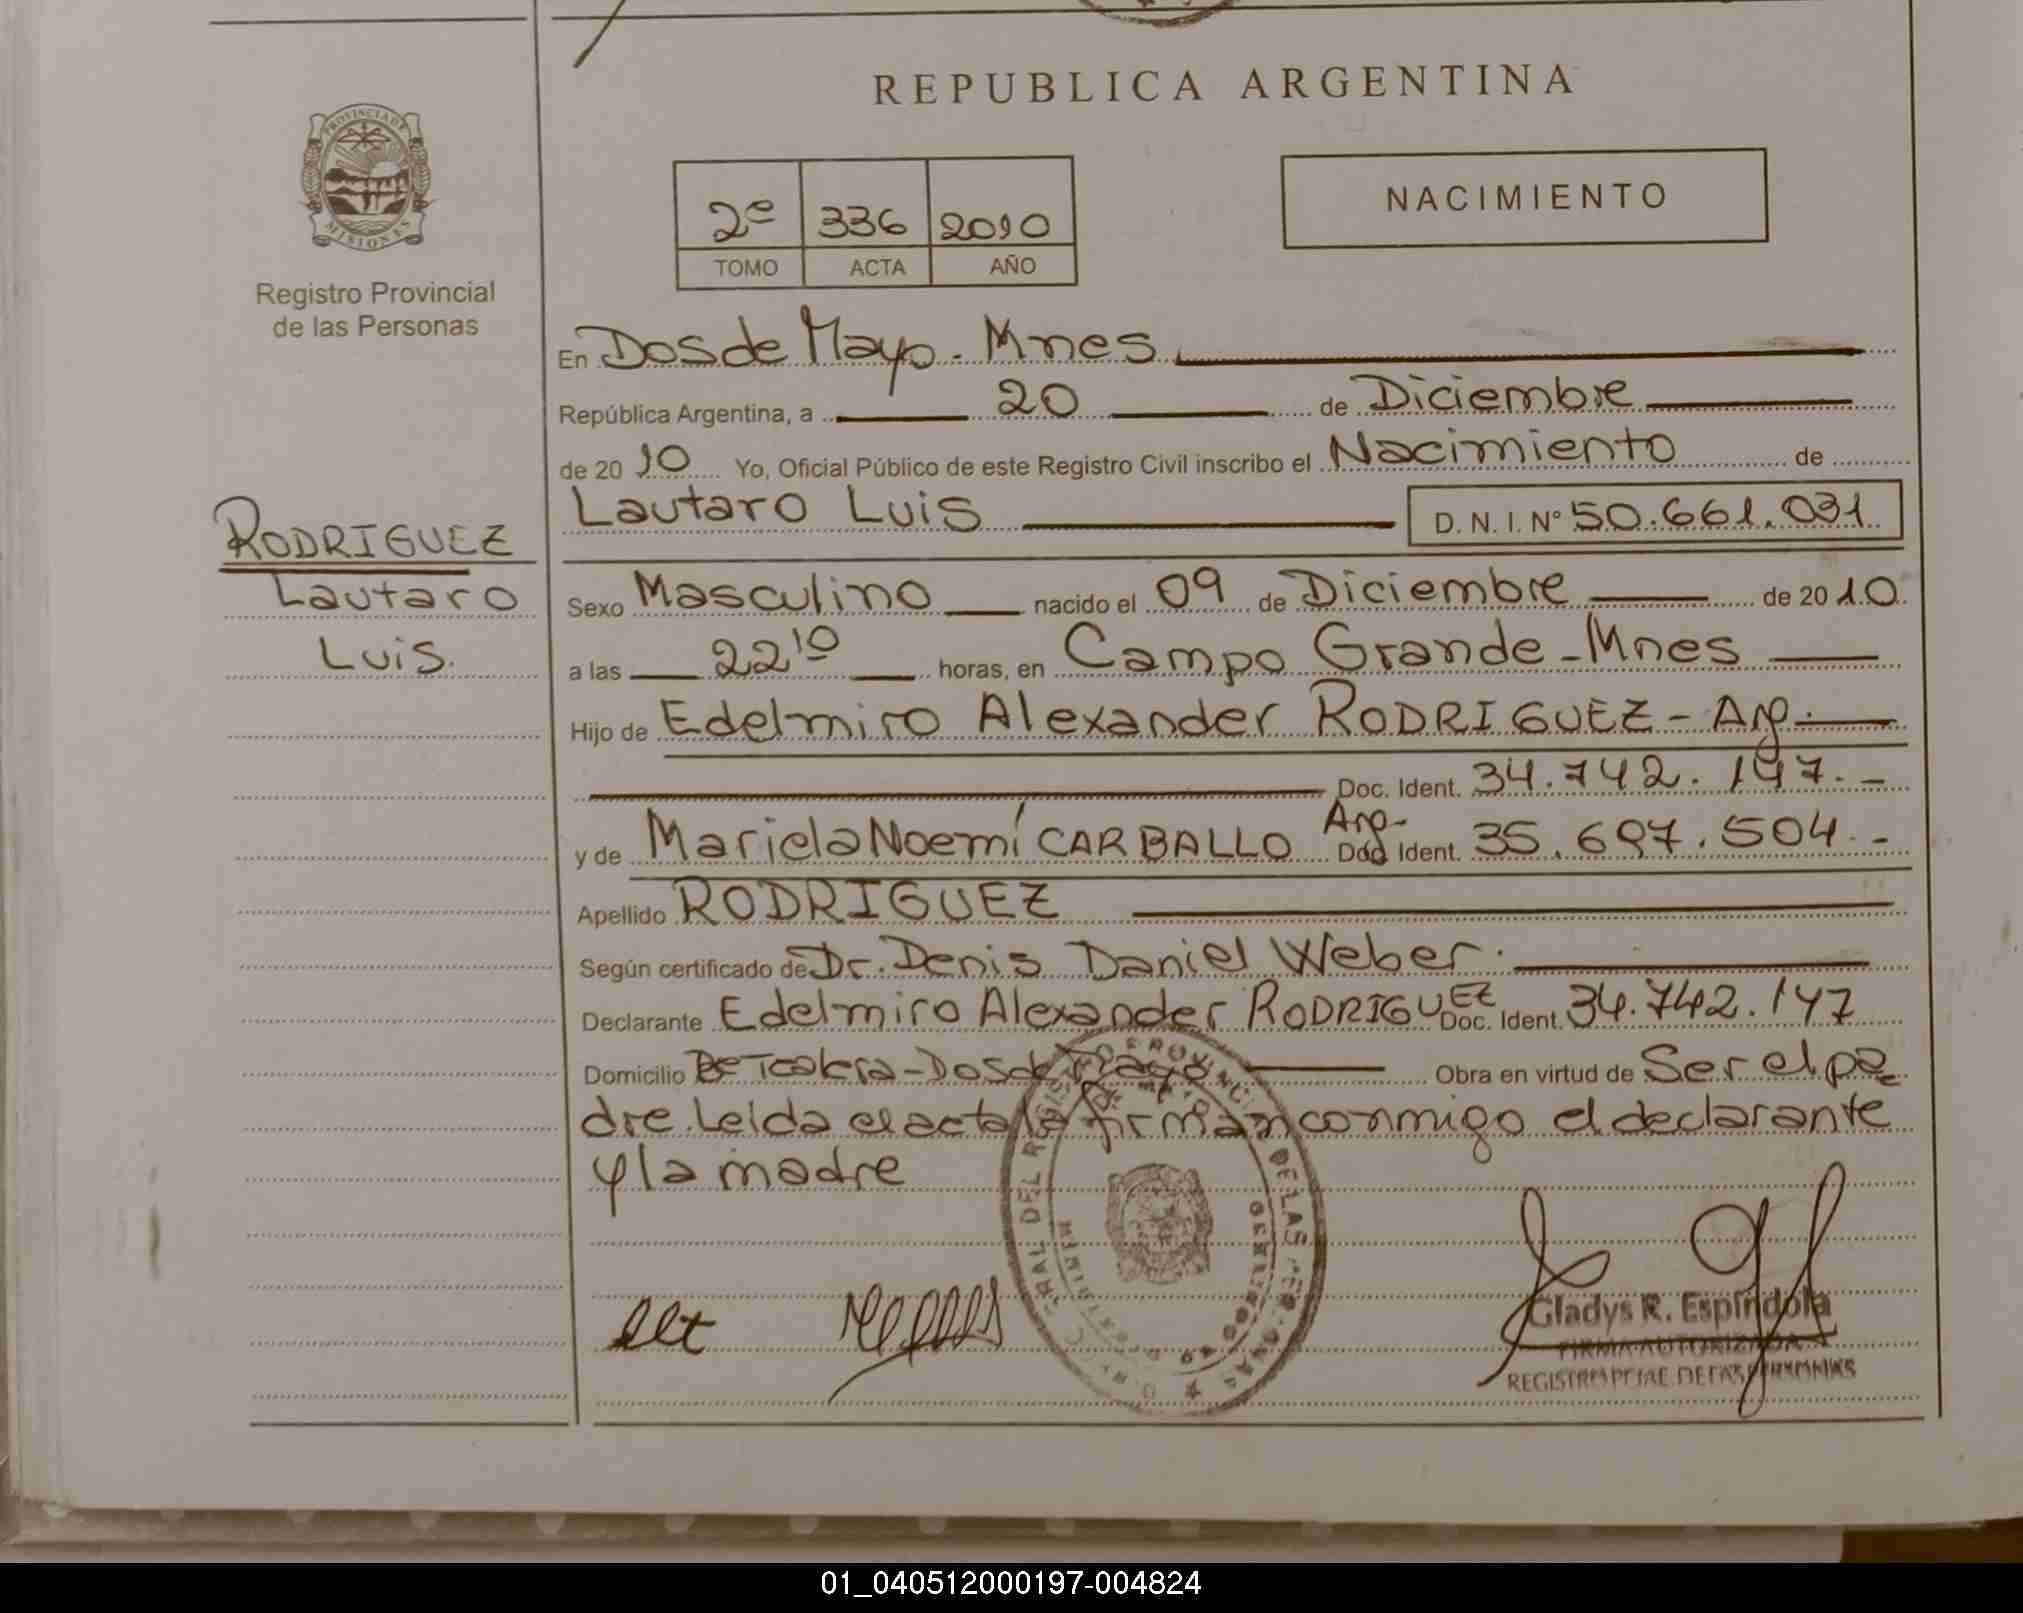 REPUBLICA ARGENTINA
PROVINCIA DE
MISIONES
Registro Provincial
de las Personas
2º 336 2010
TOMO ACTA AÑO
NACIMIENTO
En Dos de Mayo - Mnes
República Argentina, a 20 de Diciembre
de 2010 Yo, Oficial Público de este Registro Civil inscribo el Nacimiento de
Lautaro Luis D. N. I. Nº 50.661.031
RODRIGUEZ
Lautaro
Luis.
Sexo Masculino nacido el 09 de Diciembre de 2010
a las 22 10 horas, en Campo Grande - Mnes
Hijo de Edelmiro Alexander RODRIGUEZ - Arg.
Doc. Ident. 34.742.147.-
y de Mariela Noemí CARBALLO Arg- Doc. Ident. 35.697.504.-
Apellido RODRIGUEZ
Según certificado de Dr. Denis Daniel Weber.
Declarante Edelmiro Alexander RODRIGUEZ Doc. Ident. 34.742.147
Domicilio Dos de Mayo Obra en virtud de Ser el pa
dre. Leida el acta la firman conmigo el declarante
y la madre
Gladys R. Espíndola
FIRMA AUTORIZADA
REGISTRO PCIAL. DE LAS PERSONAS
01_040512000197-004824